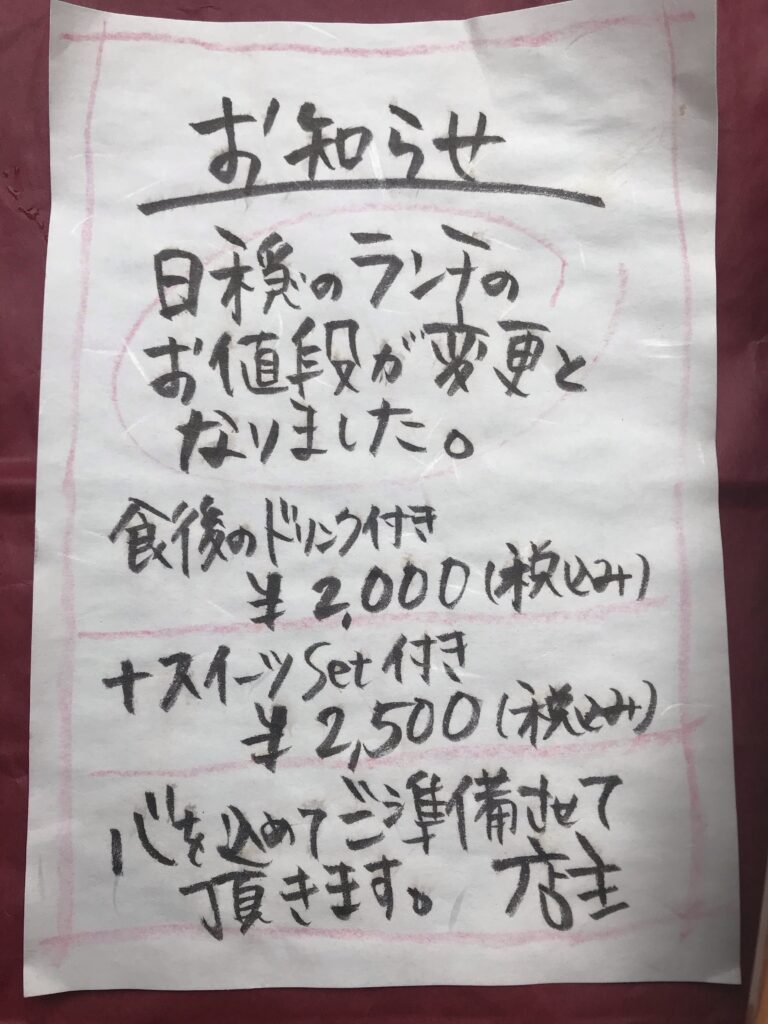 お知らせ
日穏のランチの
お値段が変更と
なりました。
食後のドリンク付き
¥2,000(税込み)
+スイーツSet付き
¥2,500(税込み)
心を込めてご準備させて
頂きます。 店主